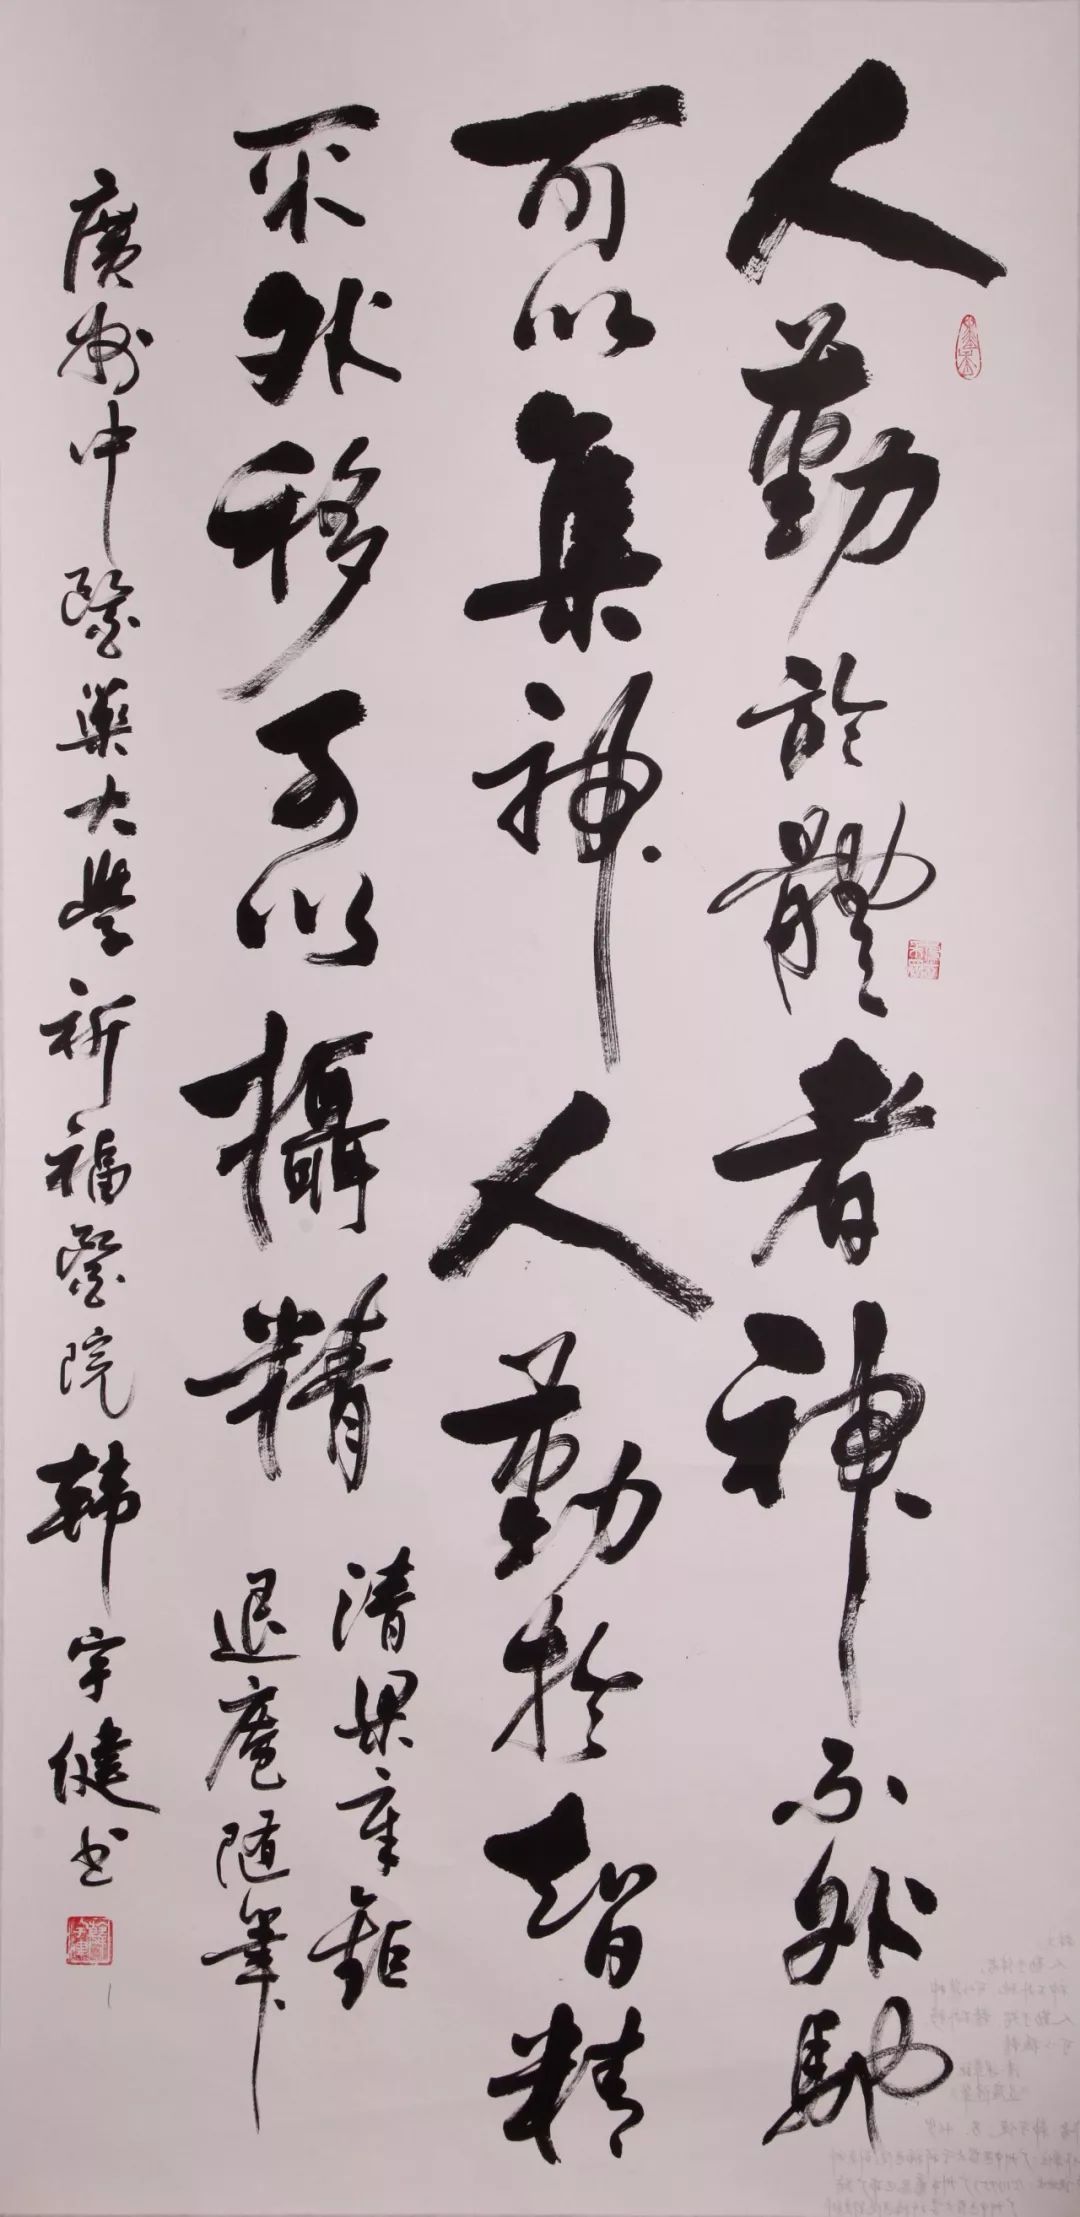 人勤於體者神不外馳
可以集神人勤於智精
不外移可以攝精
清梁章鉅
退庵随筆
廣州中醫藥大學祈福醫院韩宇健书